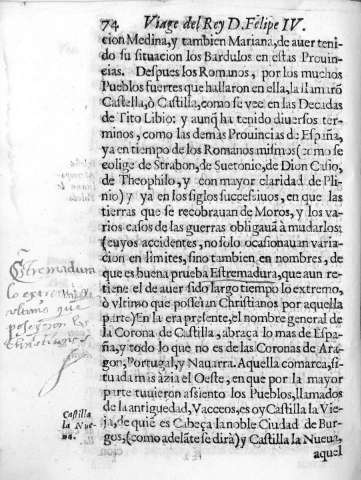 74 Viage del Rey D. Felipe IV.
cion Medina, y tambien Mariana, de auer teni-
do su situacion los Bardulos en estas Prouin-
cias. Despues los Romanos, por los muchos
Pueblos fuertes que hallaron en ella, la llamarõ
Castella, ò Castilla, como se vee en las Decadas
de Tito Libio: y aunq̃ ha tenido diuersos ter-
minos, como las demàs Prouincias de España,
ya en tiempo de los Romanos mismos (como se
colige de Strabon, de Suetonio, de Dion Casio,
de Theophilo, y con mayor claridad de Pli-
nio) y ya en los siglos succesiuos, en que las
tierras que se recobrauan de Moros, y los va-
rios casos de las guerras obligauã à mudarlos:
(cuyos accidentes, no solo ocasionauan varia-
cion en limites, sino tambien en nombres, de
que es buena prueba Estremadura, que aun re-
tiene el de auer sido largo tiempo lo extremo,
ò vltimo que posseìan Christianos por aquella
parte) En la era presente, el nombre general de
la Corona de Castilla, abraça lo mas de Espa-
ña, y todo lo que no es de las Coronas de Ara-
gon, Portugal, y Nauarra. Aquella comarca, si-
tuada mas àzia el Oeste, en que por la mayor
parte tuuieron assiento los Pueblos, llamados
de la antiguedad, Vacceos, es oy Castilla la Vie-
ja, de quiē es Cabeça la noble Ciudad de Bur-
gos, (como adelãte se dirà) y Castilla la Nueua,
aquel
Estremadura
lo extremo
vltimo que
posseyeron los
Christianos
Castilla
la Nue-
ua.